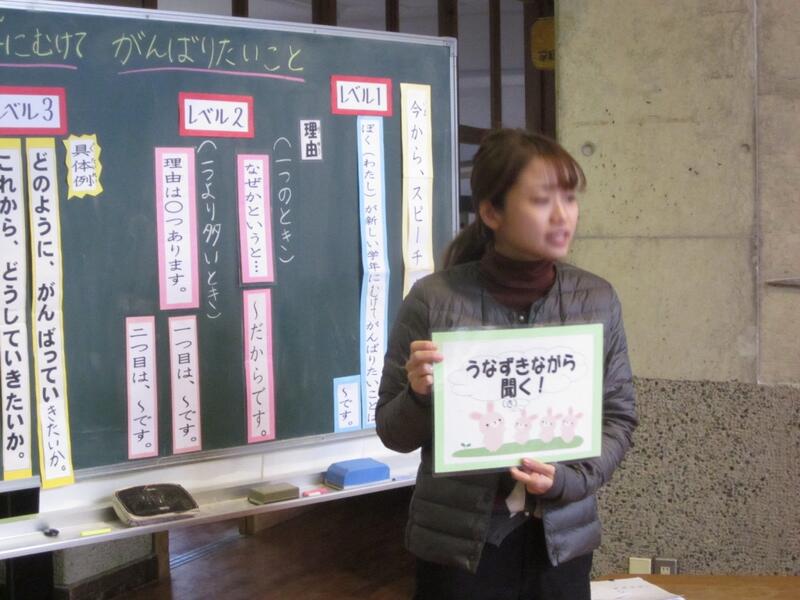 にむけて がんばりたいこと
今から、スピーチ
レベル1
ぼく(わたし)が新しい学年にむけてがんばりたいことは
〜です。
理由
(一つのとき)
レベル2
なぜかというと…
〜だからです。
(一つより多いとき)
理由は〇つあります。
一つ目は、〜です。
二つ目は、〜です。
レベル3
具体例
どのように、がんばっていきたいか。
これから、どうしていきたいか。
うなずきながら
聞く!
(き)